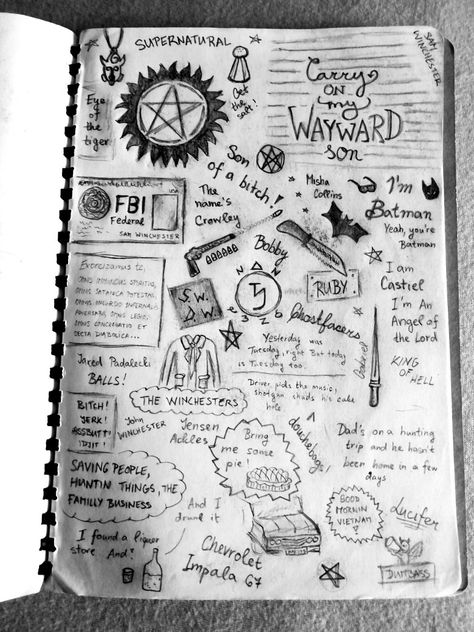 SUPERNATURAL
SAM
WINCHESTER
Eye
of the
tiger
Get
the
salt!
Carry
ON
my
WAYWARD
son
Son
of a bitch!
The
name's
Crowley
Misha
Collins
I'm
Batman
Yeah, you're
Batman
FBI
Federal
SAM WINCHESTER
Bobby
RUBY
I am
Castiel
I'm An
Angel of
the Lord
KING
OF
HELL
Exorcizamus te,
OMNIS IMMUNDUS SPIRITUS,
OMNIS SATANICA POTESTAS,
OMNIS INCURSIO INFERNALIS
ADVERSARII, OMNIS LEGIO,
OMNIS CONGREGATIO ET
SECTA DIABOLICA...
S.W.
D.W.
Ghostfacers
Yesterday was
Tuesday, right. But today
is Tuesday too.
Jared Padalecki
BALLS!
THE WINCHESTERS
Driver picks the music,
shotgun shuds his cake
hole
BITCH!
JERK!
ASSBUTT!
IDJIT!
John
WINCHESTER
Jensen
Ackles
Bring
me some
pie!
douchebags!
Dad's on a hunting
trip and he hasn't
been home in a few
days
SAVING PEOPLE,
HUNTIN THINGS, THE
FAMILLY BUSINESS
And I
drunk it
GOOD
MORNIN
VIETNAM
!
Lucifer
I found a liquer
store And?
Chevrolet
Impala 67
DUMBASS